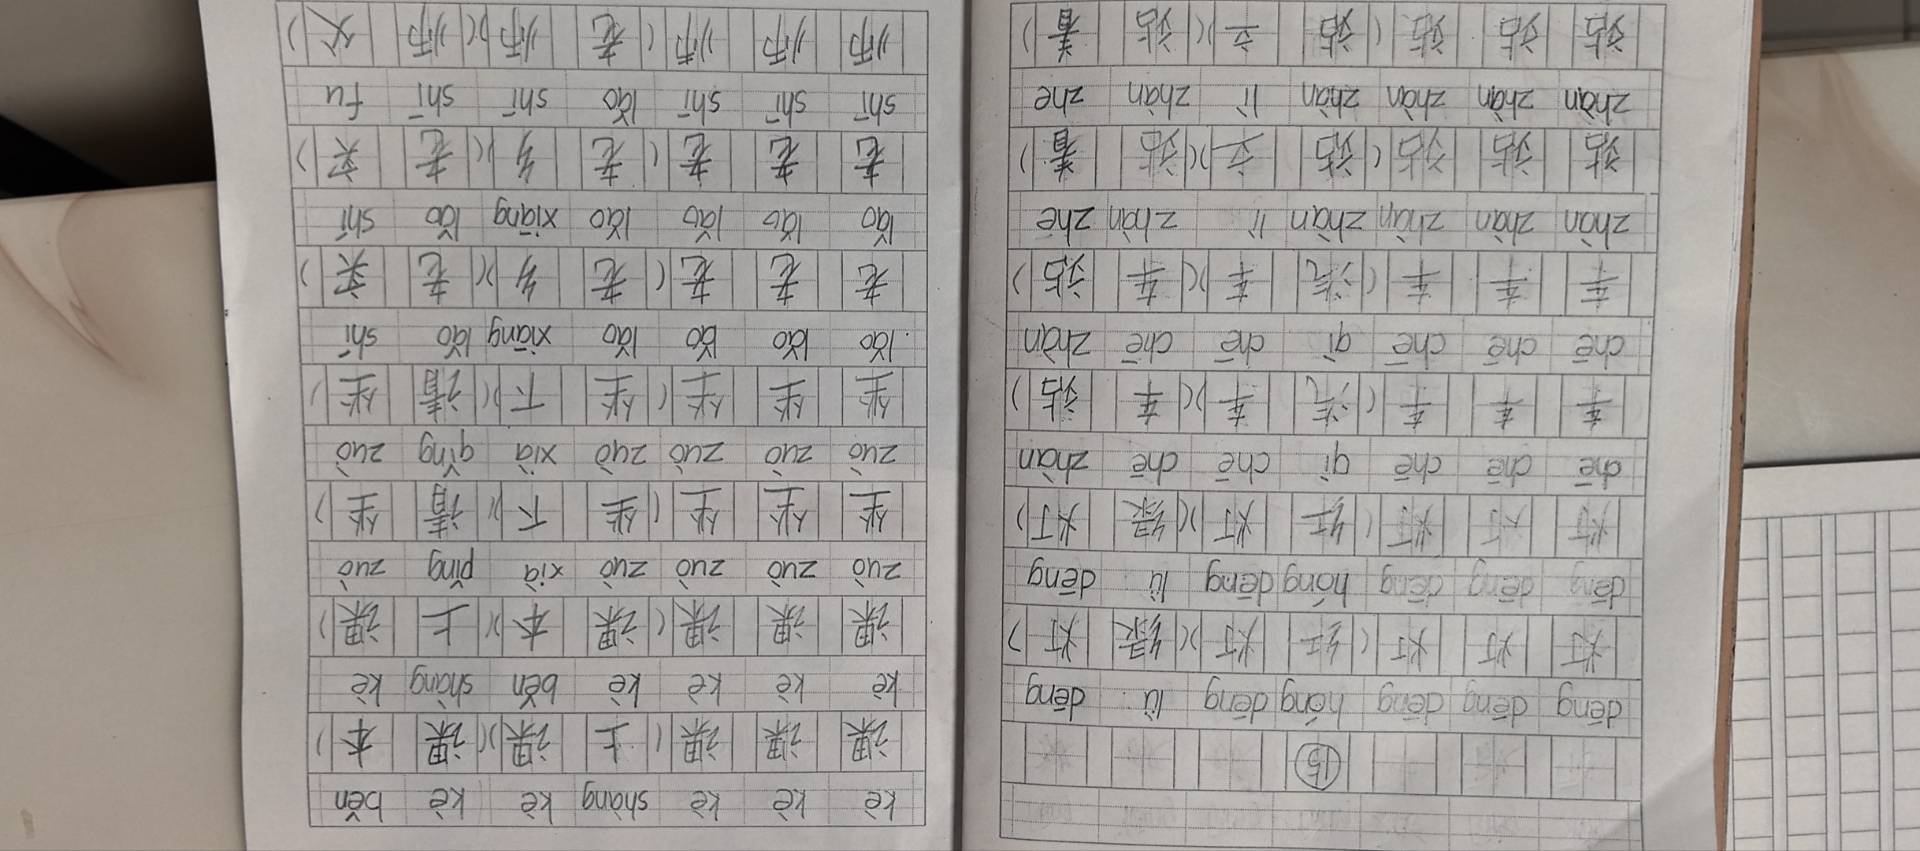 ⑮
dēng dēng dēng hóng dēng lǜ dēng
灯 灯 灯 (红 灯)(绿 灯)
dēng dēng dēng hóng dēng lǜ dēng
灯 灯 灯 (红 灯)(绿 灯)
chē chē chē qì chē chē zhàn
车 车 车 (汽 车)(车 站)
chē chē chē qì chē chē zhàn
车 车 车 (汽 车)(车 站)
zhàn zhàn zhàn zhàn lì zhàn zhe
站 站 站 (站 立)(站 着)
zhàn zhàn zhàn zhàn lì zhàn zhe
站 站 站 (站 立)(站 着)
kè kè kè shàng kè kè běn
课 课 课 (上 课)(课 本)
kè kè kè kè běn shàng kè
课 课 课 (课 本)(上 课)
zuò zuò zuò zuò xià pǐng zuò
坐 坐 坐 (坐 下)(请 坐)
zuò zuò zuò zuò xià qǐng zuò
坐 坐 坐 (坐 下)(请 坐)
lǎo lǎo lǎo lǎo xiāng lǎo shí
老 老 老 (老 乡)(老 实)
lǎo lǎo lǎo lǎo xiāng lǎo shí
老 老 老 (老 乡)(老 实)
shī shī shī lǎo shī shī fu
师 师 师 (老 师)(师 父)